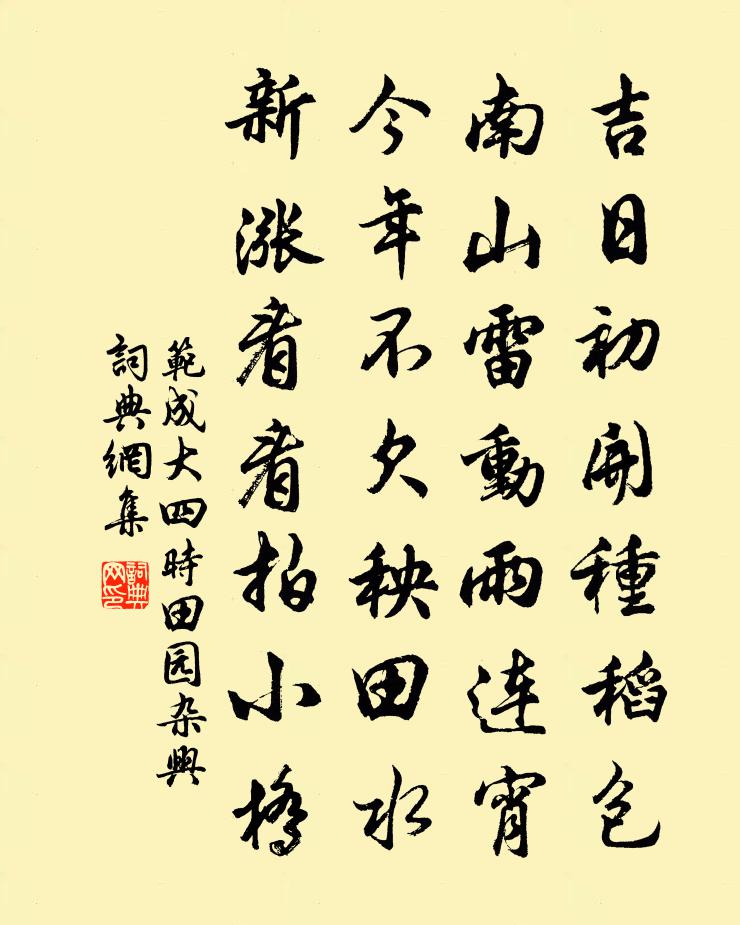 吉日初開種稻包
南山雷動雨连宵
今年不欠秧田水
新漲看看拍小橋
範成大四時田园杂興
詞典網集
詞典网印